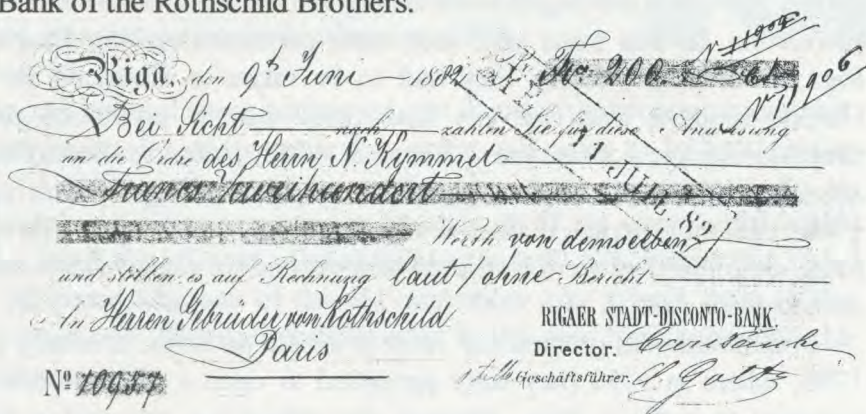 Bank of the Rothschild Brothers.
N 11904
N 11906
Riga, den 9t Juni 1882 Frs 200. Ct
Bei Sicht nach zahlen Sie für diese Anweisung
an die Ordre des Herrn N. Kymmel
Francs Zweihundert
11 JUIL 82
Werth von demselben
und stellen es auf Rechnung laut / ohne Bericht
An Herren Gebrüder von Rothschild
Paris
RIGAER STADT-DISCONTO-BANK.
Director.
Geschäftsführer. A. Goltz
Nº 10957